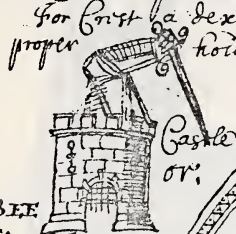 For Crest a dex
proper hold
Castle
or;
BEE